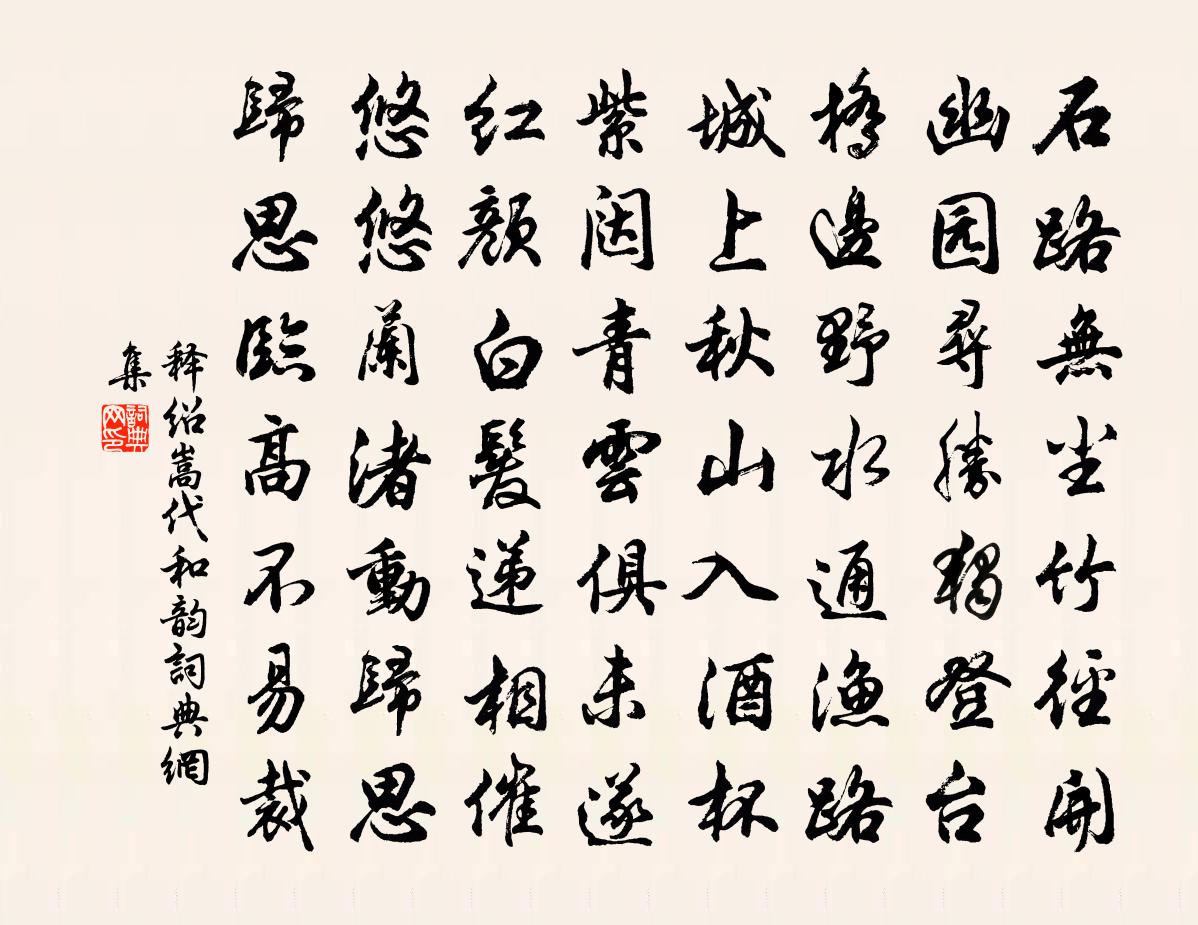 石路無尘竹徑開
幽园尋勝独登台
橋邊野水通漁路
城上秋山入酒杯
紫闼青雲俱未遂
红顏白髮递相催
悠悠蘭渚動歸思
歸思臨高不易裁
释绍嵩代和韵詞典網
集
詞典
网印